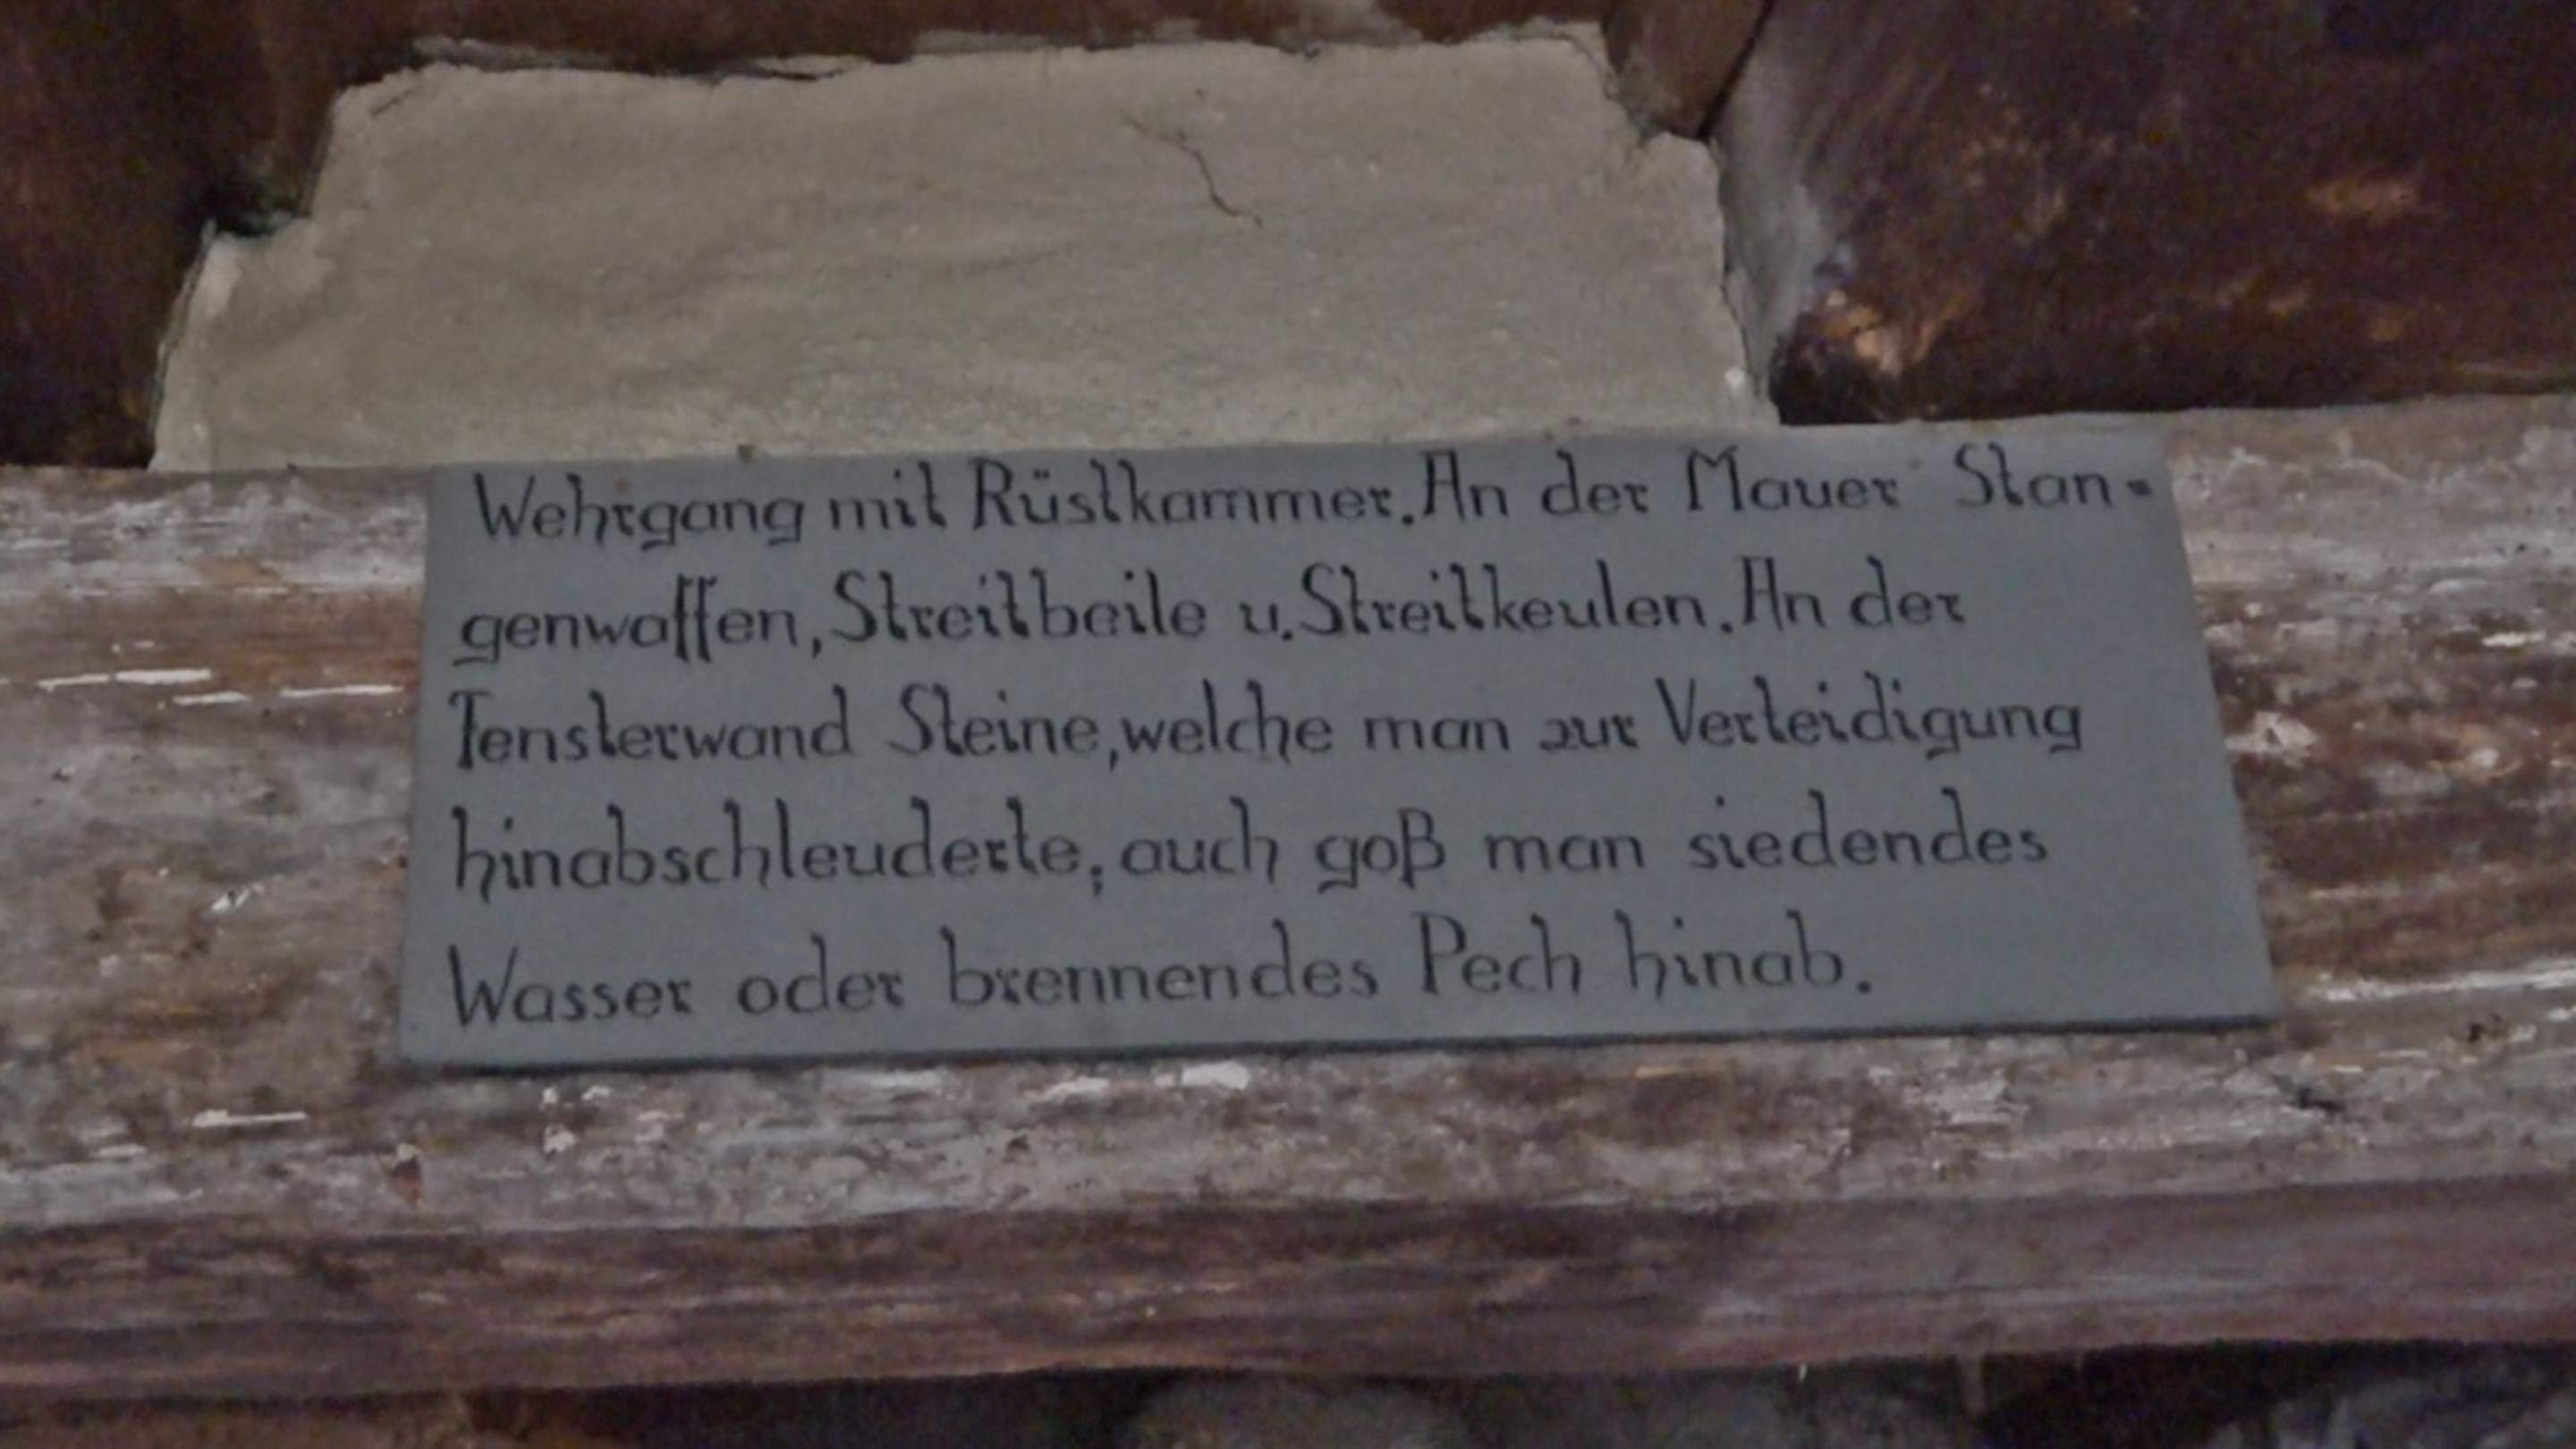 Wehrgang mit Rüstkammer. An der Mauer Stan-
genwaffen, Streitbeile u. Streitkeulen. An der
Fensterwand Steine, welche man zur Verteidigung
hinabschleuderte, auch goß man siedendes
Wasser oder brennendes Pech hinab.